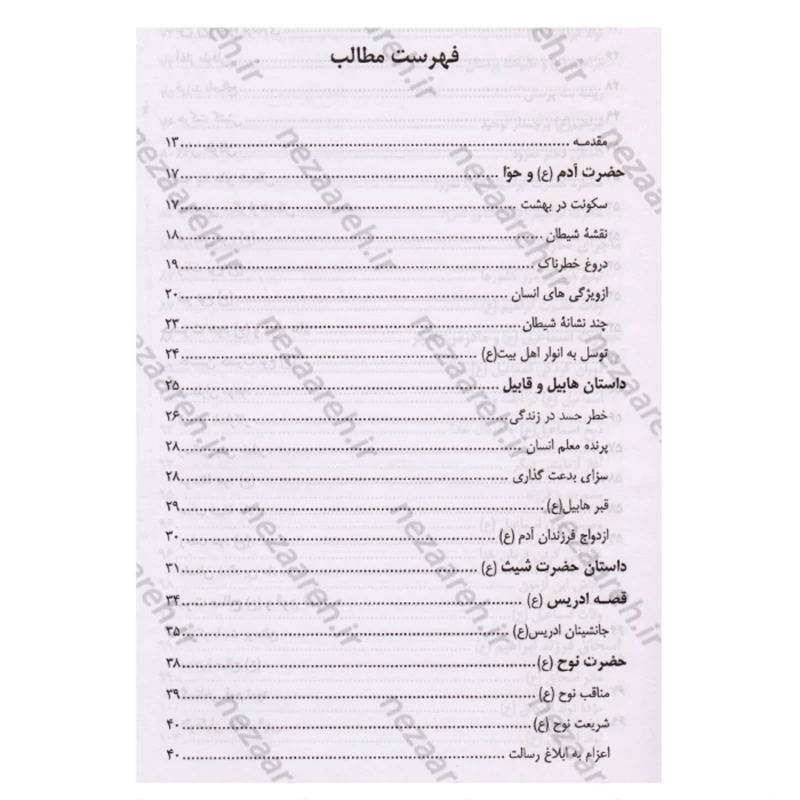 فهرست مطالب
مقدمه ........ ۱۳
حضرت آدم (ع) و حوّا ........ ۱۷
سکونت در بهشت ........ ۱۷
نقشهٔ شیطان ........ ۱۸
دروغ خطرناک ........ ۱۹
ازویژگی های انسان ........ ۲۰
چند نشانهٔ شیطان ........ ۲۳
توسل به انوار اهل بیت(ع) ........ ۲۴
داستان هابیل و قابیل ........ ۲۵
خطر حسد در زندگی ........ ۲۶
پرنده معلم انسان ........ ۲۸
سزای بدعت گذاری ........ ۲۸
قبر هابیل(ع) ........ ۲۹
ازدواج فرزندان آدم (ع) ........ ۳۰
داستان حضرت شیث (ع) ........ ۳۱
قصه ادریس (ع) ........ ۳۴
جانشینان ادریس(ع) ........ ۳۵
حضرت نوح (ع) ........ ۳۸
مناقب نوح (ع) ........ ۳۹
شریعت نوح (ع) ........ ۴۰
اعزام به ابلاغ رسالت ........ ۴۰
nezaareh.ir